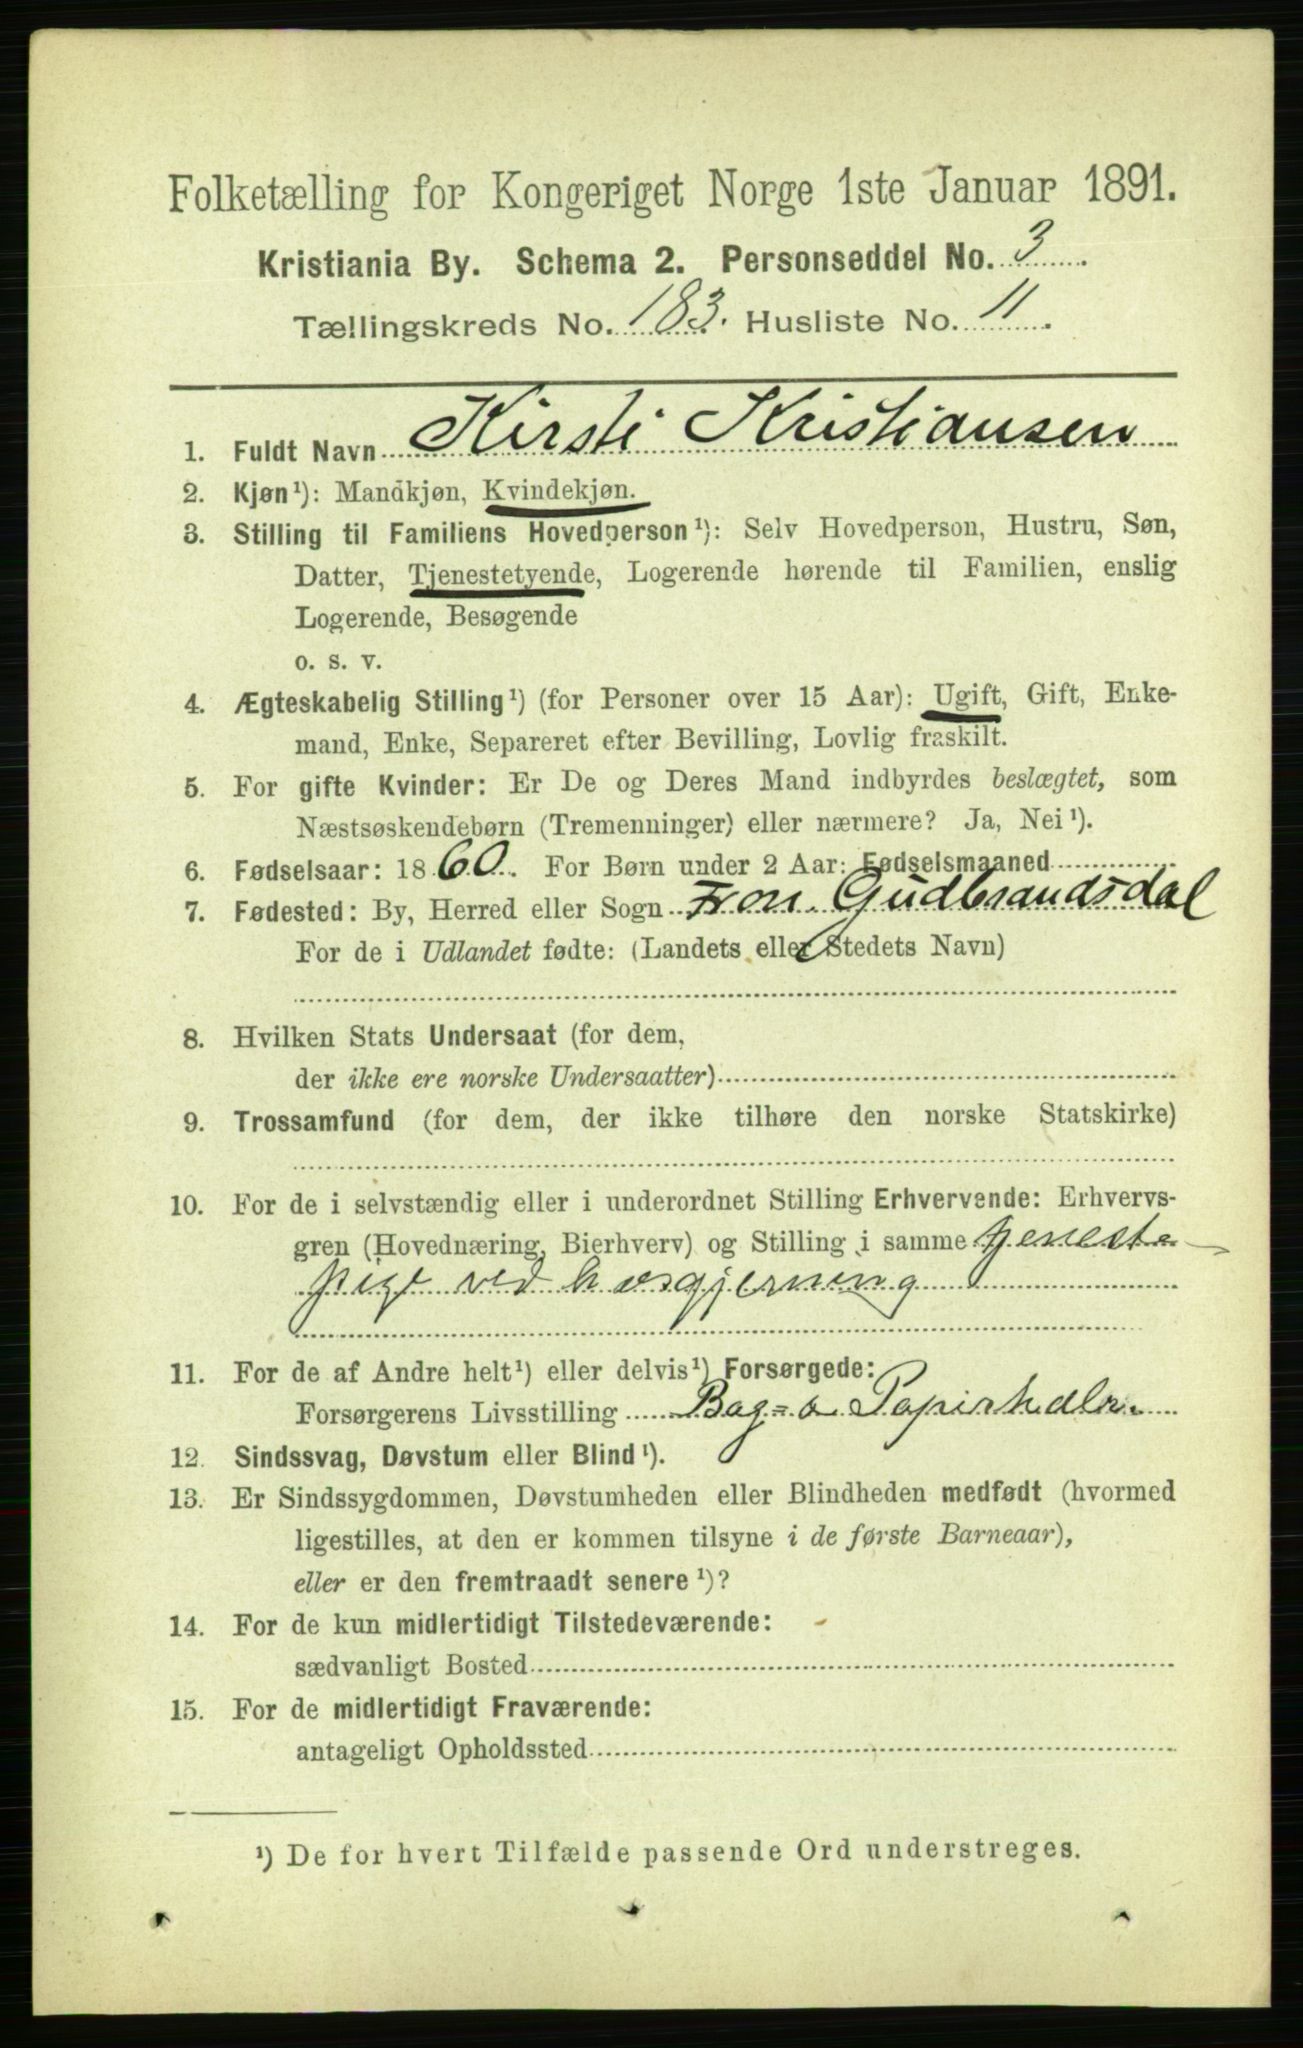 Folketælling for Kongeriget Norge 1ste Januar 1891.
Kristiania By. Schema 2. Personseddel No. 3.
Tællingskreds No. 183. Husliste No. 11.
1. Fuldt Navn Kirsti Kristiansen
2. Kjøn¹): Mandkjøn, Kvindekjøn.
3. Stilling til Familiens Hovedperson¹): Selv Hovedperson, Hustru, Søn,
Datter, Tjenestetyende, Logerende hørende til Familien, enslig
Logerende, Besøgende
o. s. v.
4. Ægteskabelig Stilling¹) (for Personer over 15 Aar): Ugift, Gift, Enke-
mand, Enke, Separeret efter Bevilling, Lovlig fraskilt.
5. For gifte Kvinder: Er De og Deres Mand indbyrdes beslægtet, som
Næstsøskendebørn (Tremenninger) eller nærmere? Ja, Nei¹).
6. Fødselsaar: 1860. For Børn under 2 Aar: Fødselsmaaned
7. Fødested: By, Herred eller Sogn Fron. Gudbrandsdal
For de i Udlandet fødte: (Landets eller Stedets Navn)
8. Hvilken Stats Undersaat (for dem,
der ikke ere norske Undersaatter)
9. Trossamfund (for dem, der ikke tilhøre den norske Statskirke)
10. For de i selvstændig eller i underordnet Stilling Erhvervende: Erhvervs-
gren (Hovednæring, Bierhverv) og Stilling i samme tjeneste
pige ved husgjerning
11. For de af Andre helt¹) eller delvis¹) Forsørgede:
Forsørgerens Livsstilling Bog= o Papirhdlr.
12. Sindssvag, Døvstum eller Blind¹).
13. Er Sindssygdommen, Døvstumheden eller Blindheden medfødt (hvormed
ligestilles, at den er kommen tilsyne i de første Barneaar),
eller er den fremtraadt senere¹)?
14. For de kun midlertidigt Tilstedeværende:
sædvanligt Bosted
15. For de midlertidigt Fraværende:
antageligt Opholdssted
¹) De for hvert Tilfælde passende Ord understreges.